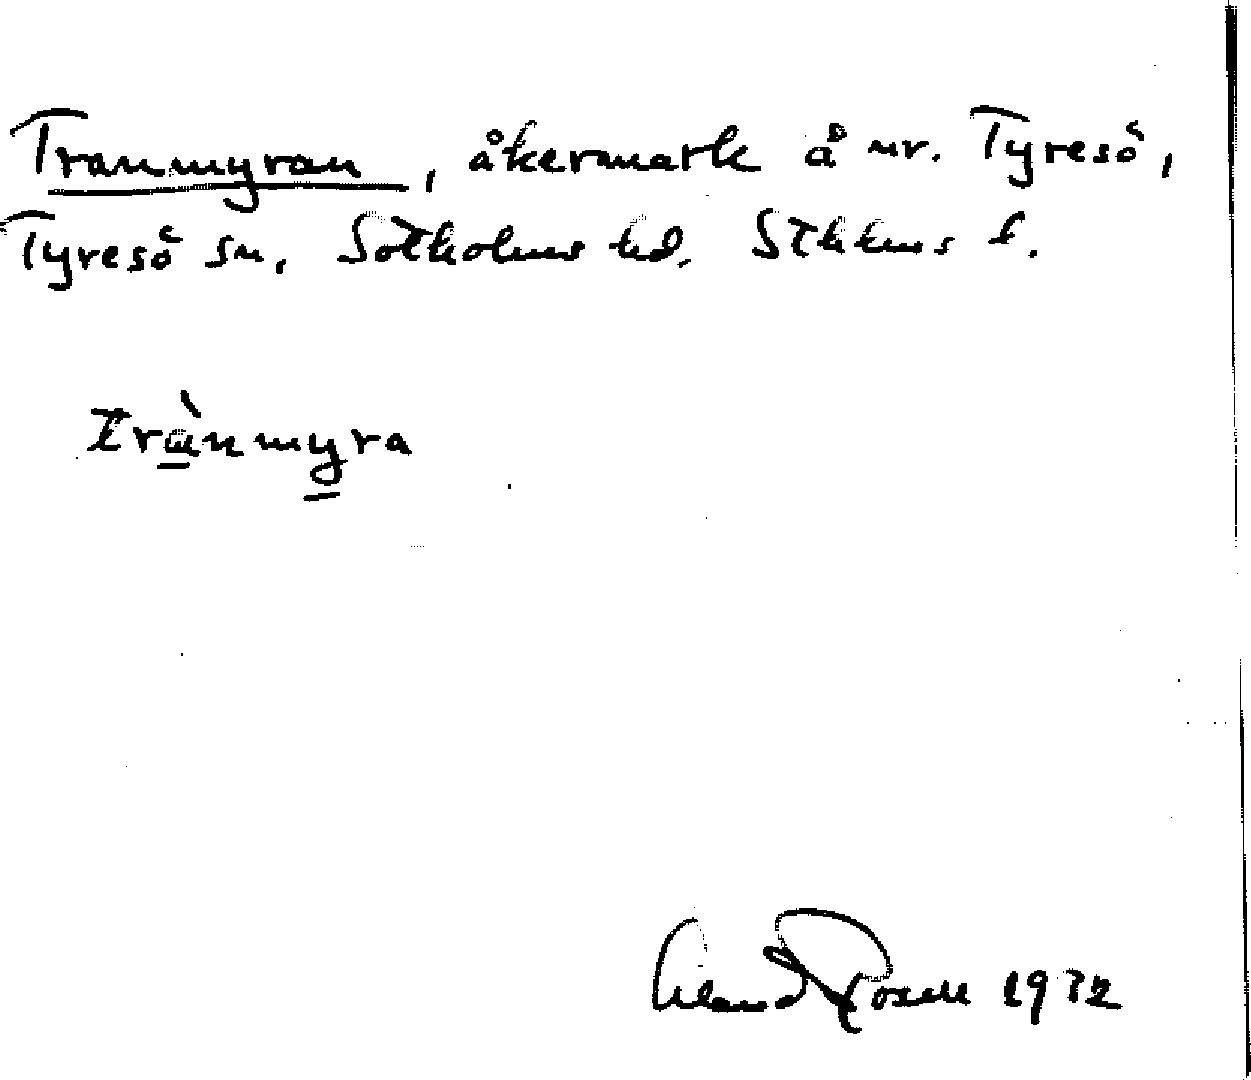 Tranmyran, åkermark å nr. Tyresö,
Tyresö sn, Sotholms hd. Sthlms l.
Trànmyra
Rosell 1932